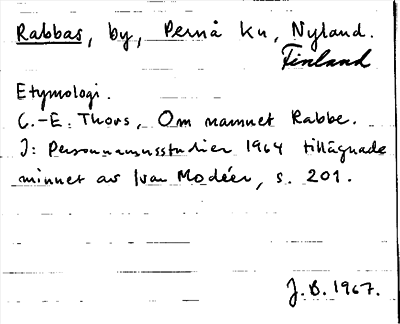 Rabbas, by, Pernå kn, Nyland.
Finland
Etymologi.
C.-E. Thors, Om namnet Rabbe.
I: Personnamnsstudier 1964 tillägnade
minnet av Ivar Modéer, s. 201.
J.B. 1967.